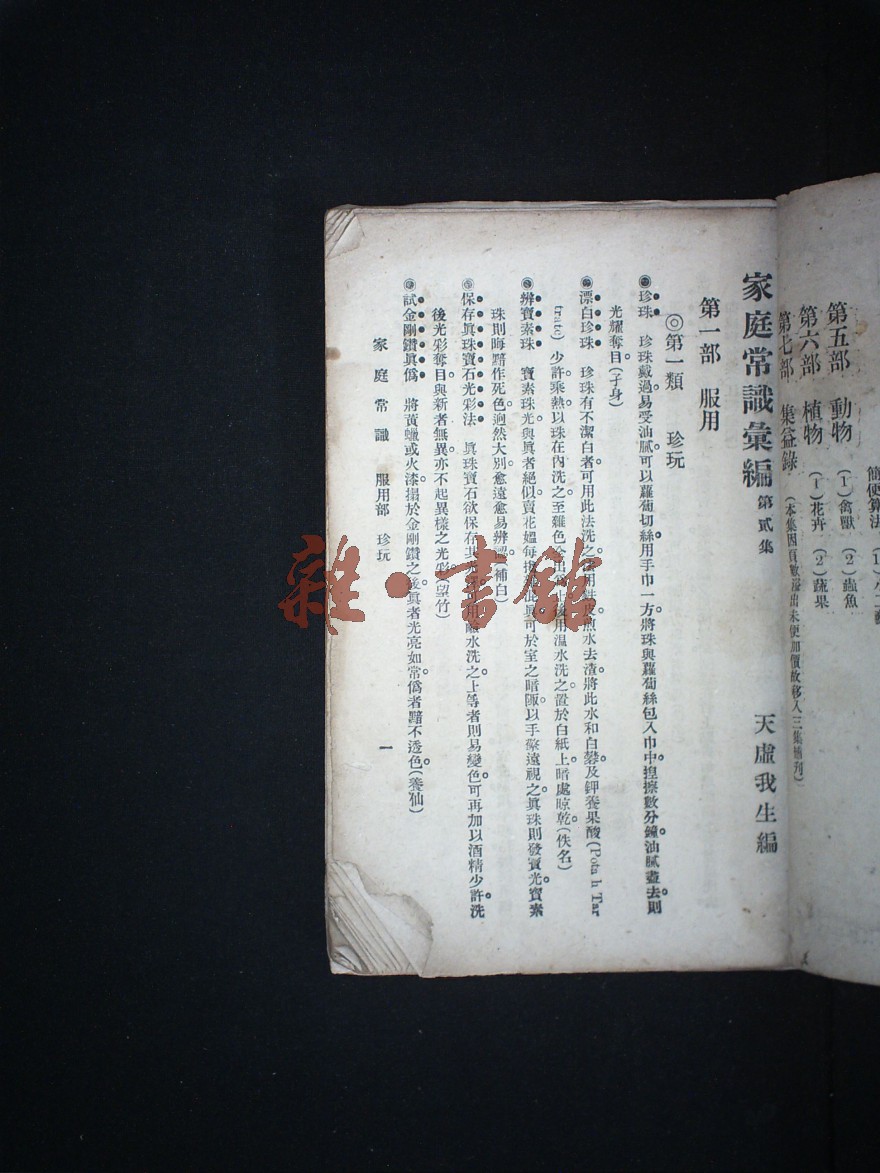 簡便算法
第五部 動物 (1)禽獸 (2)蟲魚
第六部 植物 (1)花卉 (2)蔬果
第七部 集益錄 (本集因頁數溢出未便加價故移入三集增刊)
家庭常識彙編 第貳集 天虛我生編
第一部 服用
◎第一類 珍玩
珍珠 珍珠戴過易受油膩可以蘿蔔切絲用手巾一方將珠與蘿蔔絲包入巾中揘擦數分鐘油膩盡去。則
光耀奪目。(子身)
漂白珍珠 珍珠有不潔白者可用此法洗之。用 煎水去渣將此水和白礬及鉀養果酸(Pota h Tar
trate)少許乘熱以珠在內洗之至雜色 出 後用溫水洗之。置於白紙上暗處晾乾。(佚名)
辨寶素珠 寶素珠光與眞者絕似。賣花媼每 眞可於室之暗陬。以手擎遠視之。眞珠則發寶光。寶素
珠則晦黯作死色。迥然大別。愈遠愈易辨 (補白)
保存眞珠寶石光彩法 眞珠寶石欲保存其光 用鹼水洗之。上等者則易變色。可再加以酒精少許。洗
後光彩奪目。與新者無異。亦不起異樣之光彩。(望竹)
試金剛鑽眞僞 將黃蠟或火漆搨於金剛鑽之後。眞者光亮如常。僞者黯不透色。(養仙)
家庭常識 服用部 珍玩 一
雜·書館